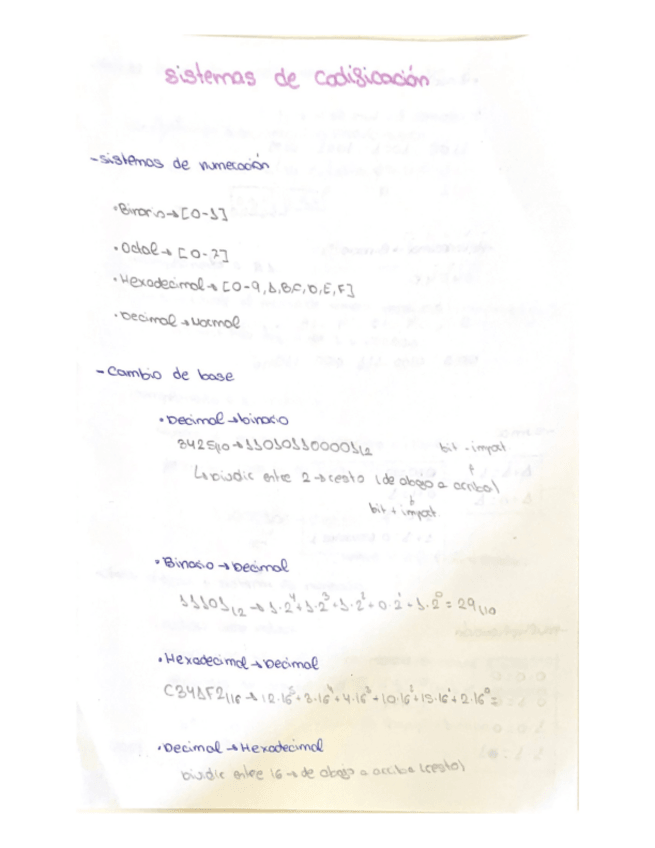 sistemas de codificación
- sistemas de numeración
• Binario → [0-1]
• Octal → [0-7]
• Hexadecimal → [0-9, A, B, C, D, E, F]
• Decimal → Normal
- Cambio de base
• Decimal → binario
3425|10 → 110101100001|2 bit - import
↳ Dividir entre 2 → resto (de abajo a arriba)
bit + import.
• Binario → Decimal
11101|2 → 1·2⁴+1·2³+1·2²+0·2¹+1·2⁰ = 29|10
• Hexadecimal → Decimal
C34AF2|16 → 12·16⁵+3·16⁴+4·16³+10·16²+15·16¹+2·16⁰=
• Decimal → Hexadecimal
Dividir entre 16 → de abajo a arriba (resto)